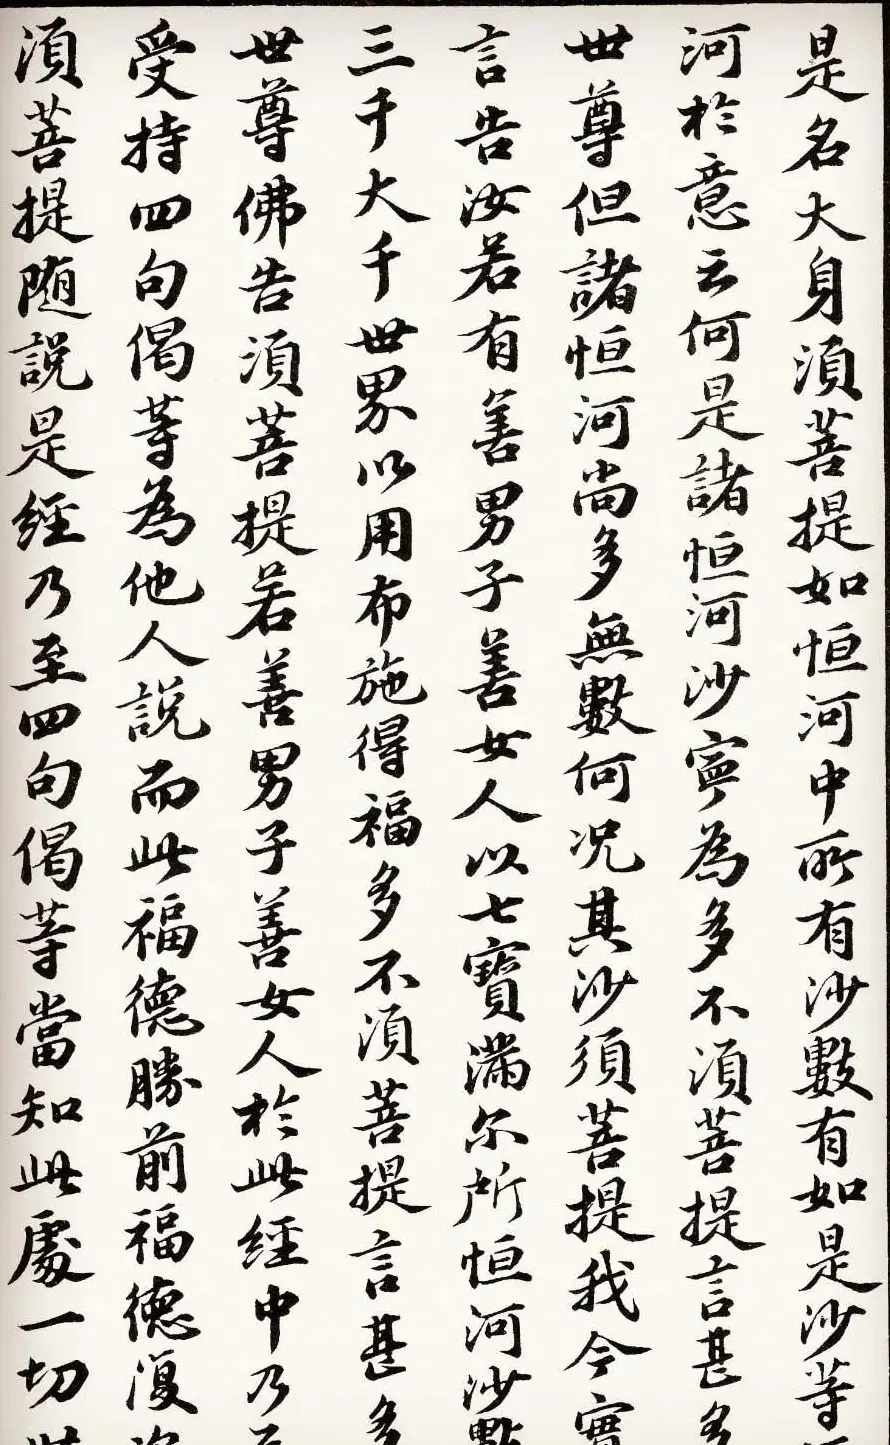 是名大身須菩提如恒河中所有沙數有如是沙等
河於意云何是諸恒河沙寧為多不須菩提言甚多
世尊但諸恒河尚多無數何況其沙須菩提我今實
言告汝若有善男子善女人以七寶滿尔所恒河沙數
三千大千世界以用布施得福多不須菩提言甚多
世尊佛告須菩提若善男子善女人於此經中乃至
受持四句偈等為他人說而此福德勝前福德復次
須菩提随說是經乃至四句偈等當知此處一切世